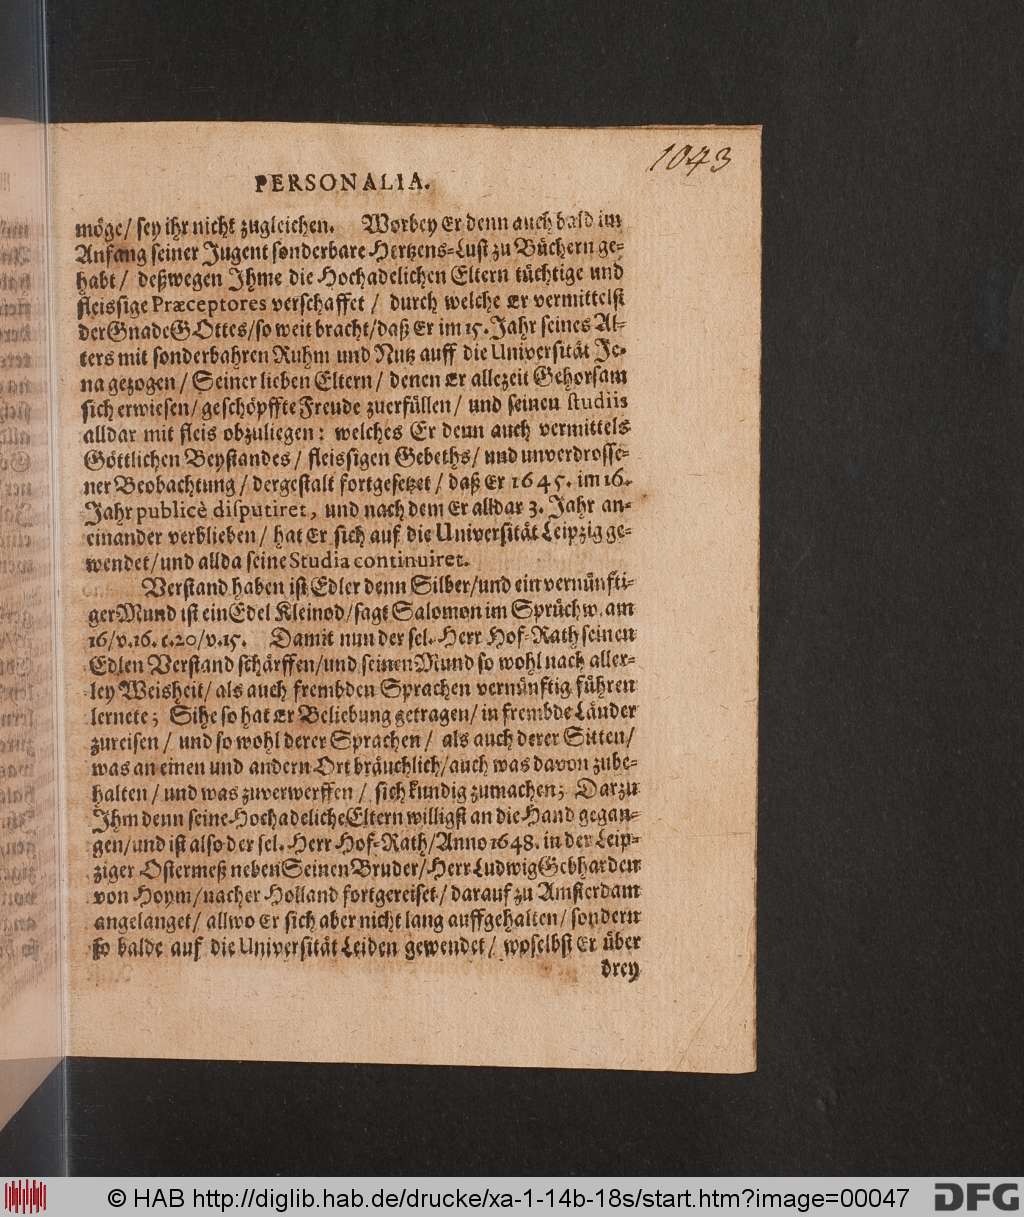 1043
PERSONALIA.
möge/ sey ihr nicht zugleichen. Worbey Er denn auch bald im
Anfang seiner Jugent sonderbare Hertzens-Lust zu Büchern ge-
habt/ deßwegen Ihme die Hochadelichen Eltern tüchtige und
fleissige Præceptores verschaffet/ durch welche Er vermittelst
der Gnade GOttes/ so weit bracht/ daß Er im 15. Jahr seines Al-
ters mit sonderbahren Ruhm und Nutz auff die Universität Je-
na gezogen/ Seiner lieben Eltern/ denen Er allezeit Gehorsam
sich erwiesen/ geschöpffte Freude zuerfüllen/ und seinen studiis
alldar mit fleis obzuliegen: welches Er denn auch vermittels
Göttlichen Beystandes/ fleissigen Gebeths/ und unverdrosse-
ner Beobachtung/ dergestalt fortgesetzet/ daß Er 1645. im 16.
Jahr publicè disputiret, und nach dem Er alldar 3. Jahr an-
einander verblieben/ hat Er sich auf die Universität Leipzig ge-
wendet/ und allda seine Studia continuiret.
Verstand haben ist Edler denn Silber/ und ein vernünfti-
ger Mund ist ein Edel Kleinod/ sagt Salomon im Sprüchw. am
16/ v. 16. c. 20/ v. 15. Damit nun der sel. Herr Hof-Rath seinen
Edlen Verstand schärffen/ und seinen Mund so wohl nach aller-
ley Weisheit/ als auch frembden Sprachen vernünftig führen
lernete; Sihe so hat Er Beliebung getragen/ in frembde Länder
zureisen/ und so wohl derer Sprachen/ als auch derer Sitten/
was an einen und andern Ort bräuchlich/ auch was davon zube-
halten/ und was zuverwerffen/ sich kundig zumachen; Darzu
Ihm denn seine Hochadeliche Eltern willigst an die Hand gegan-
gen/ und ist also der sel. Herr Hof-Rath/ Anno 1648. in der Leip-
ziger Ostermeß neben Seinen Bruder/ Herr Ludwig Gebharden
von Hoym/ nacher Holland fortgereiset/ darauf zu Amsterdam
angelanget/ allwo Er sich aber nicht lang auffgehalten/ sondern
so balde auf die Universität Leiden gewendet/ woselbst Er über
drey
© HAB http://diglib.hab.de/drucke/xa-1-14b-18s/start.htm?image=00047
DFG